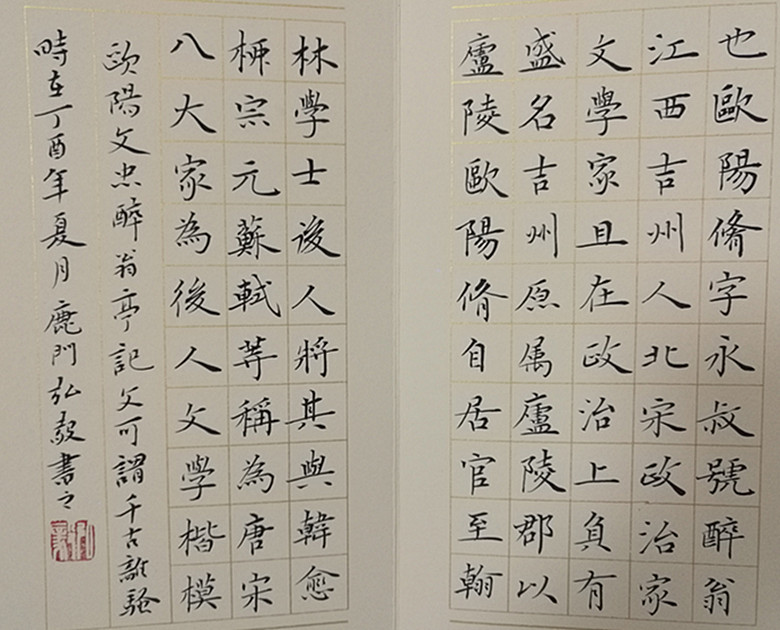 也歐陽脩字永叔號醉翁
江西吉州人北宋政治家
文學家且在政治上負有
盛名吉州原属廬陵郡以
廬陵歐陽脩自居官至翰
林學士後人將其與韓愈
柳宗元蘇軾等稱為唐宋
八大家為後人文學楷模
歐陽文忠醉翁亭記文可謂千古離騷
時在丁酉年夏月鹿門弘毅書之